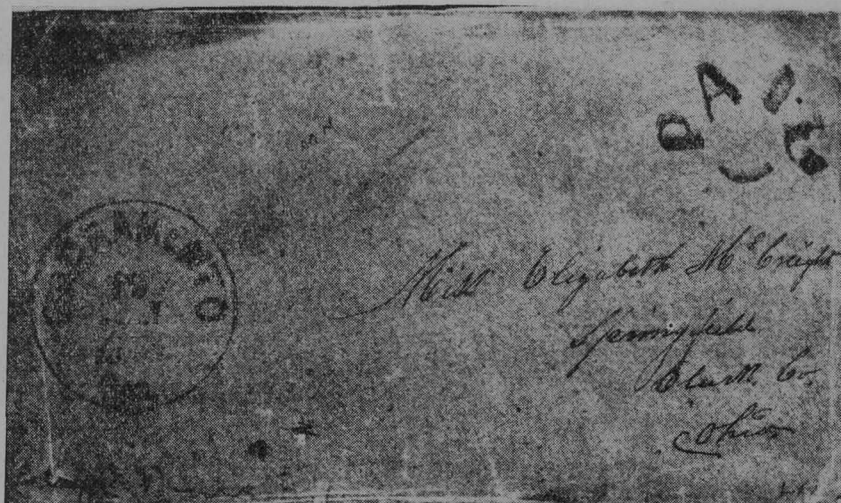 PAID
SACRAMENTO
Miss Elizabeth McCreight
Springfield
Clark Co.
Ohio